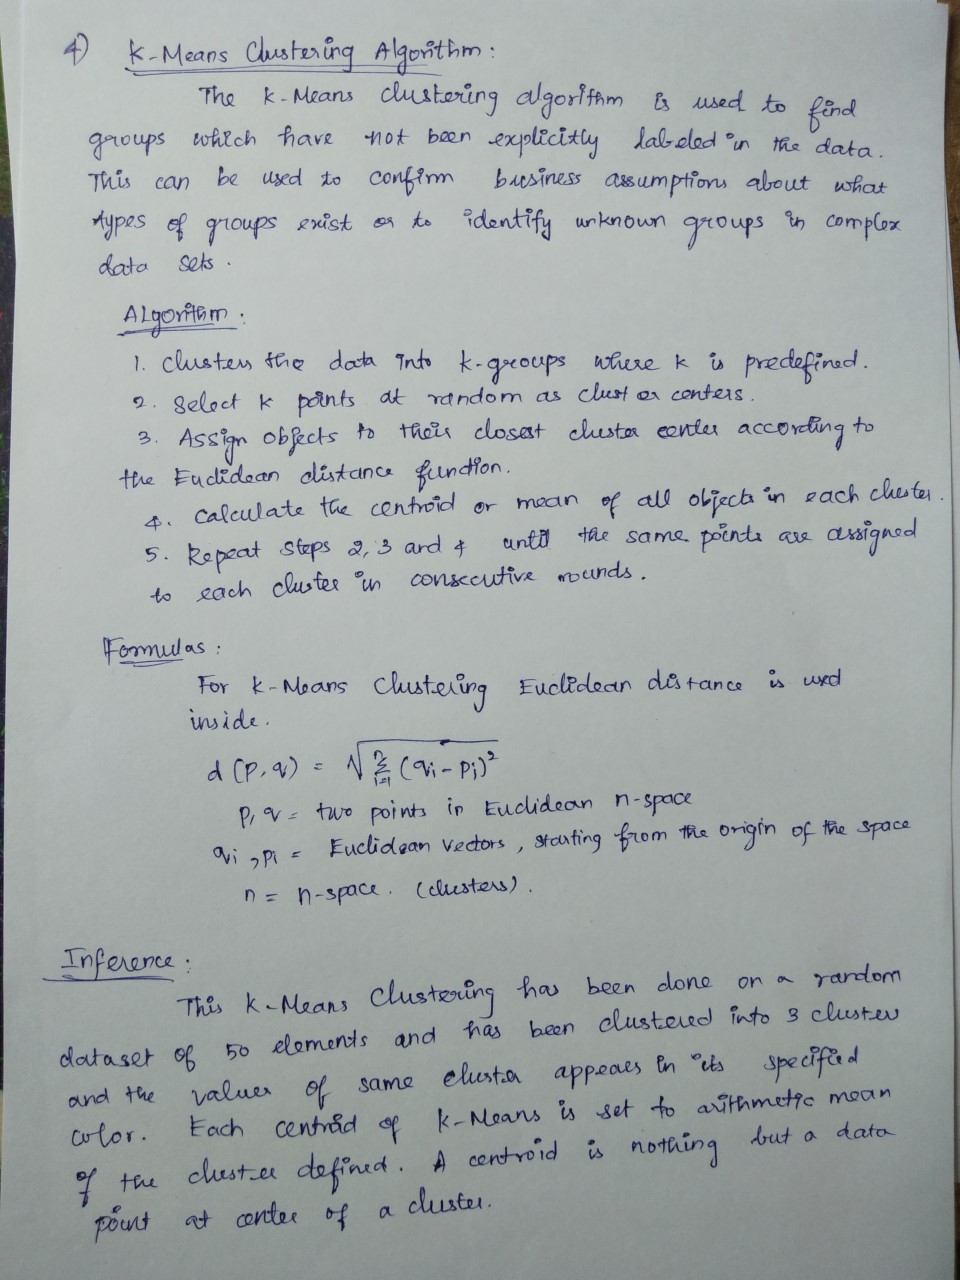 4) K-Means Clustering Algorithm:
The K-Means clustering algorithm is used to find
groups which have not been explicitly labeled in the data.
This can be used to confirm business assumptions about what
types of groups exist or to identify unknown groups in complex
data sets.
Algorithm:
1. Clusters the data into k-groups where k is predefined.
2. Select k points at random as cluster centers.
3. Assign objects to their closest cluster center according to
the Euclidean distance function.
4. Calculate the centroid or mean of all objects in each cluster.
5. Repeat steps 2, 3 and 4 until the same points are assigned
to each cluster in consecutive rounds.
Formulas:
For K-Means Clustering Euclidean distance is used
inside.
d (p, q) = √ n Σ i=1 (qi - pi)²
p, q = two points in Euclidean n-space
qi, pi = Euclidean vectors, starting from the origin of the space
n = n-space. (clusters).
Inference:
This K-Means Clustering has been done on a random
dataset of 50 elements and has been clustered into 3 cluster
and the values of same cluster appears in its specified
color. Each centroid of K-Means is set to arithmetic mean
of the cluster defined. A centroid is nothing but a data
point at center of a cluster.